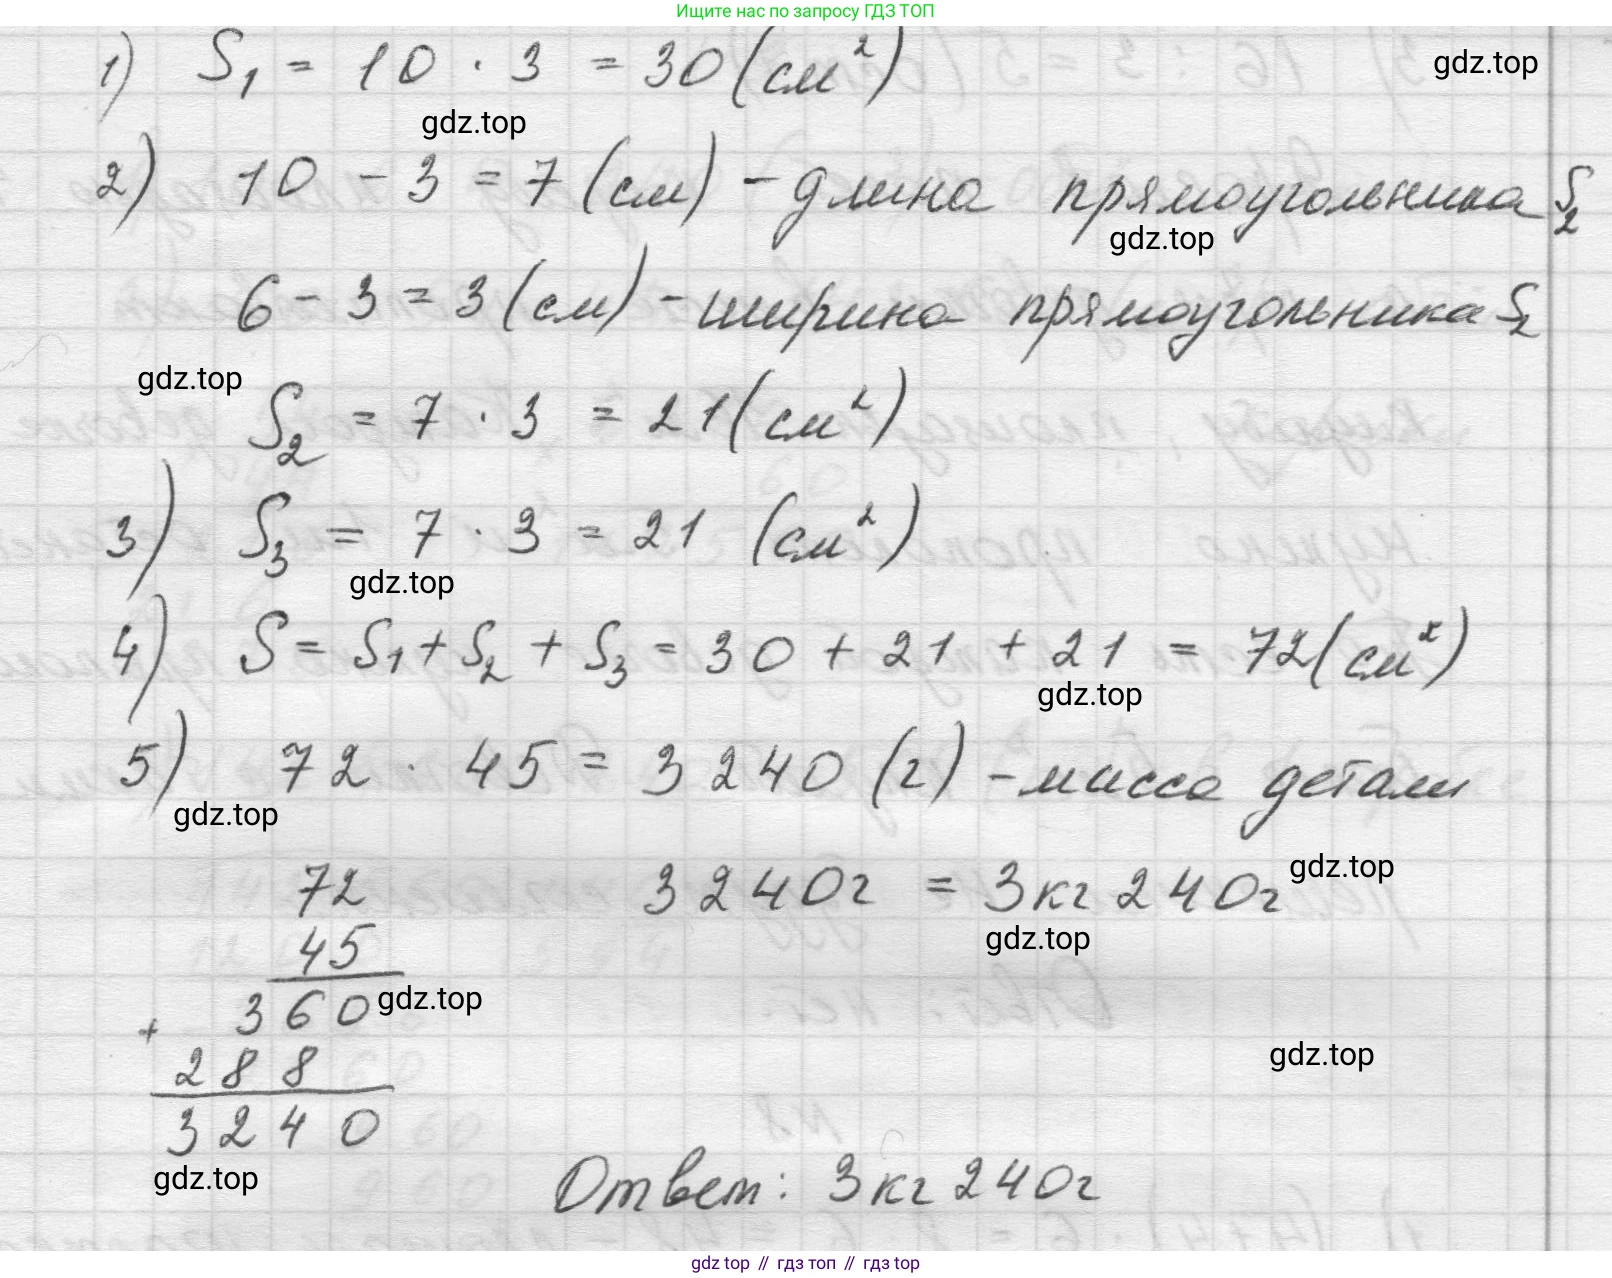 Ищите нас по запросу ГДЗ ТОП
1) S₁ = 10 · 3 = 30 (см²)
gdz.top
gdz.top
2) 10 - 3 = 7 (см) - длина прямоугольника S₂
gdz.top
6 - 3 = 3 (см) - ширина прямоугольника S₂
gdz.top
S₂ = 7 · 3 = 21 (см²)
3) S₃ = 7 · 3 = 21 (см²)
gdz.top
4) S = S₁ + S₂ + S₃ = 30 + 21 + 21 = 72 (см²)
gdz.top
5) 72 · 45 = 3240 (г) - масса детали
gdz.top
72 3240г = 3кг 240г
gdz.top
45
gdz.top
360
gdz.top
+
288
gdz.top
3240
gdz.top
Ответ: 3кг 240г
gdz top // гдз топ // гдз top